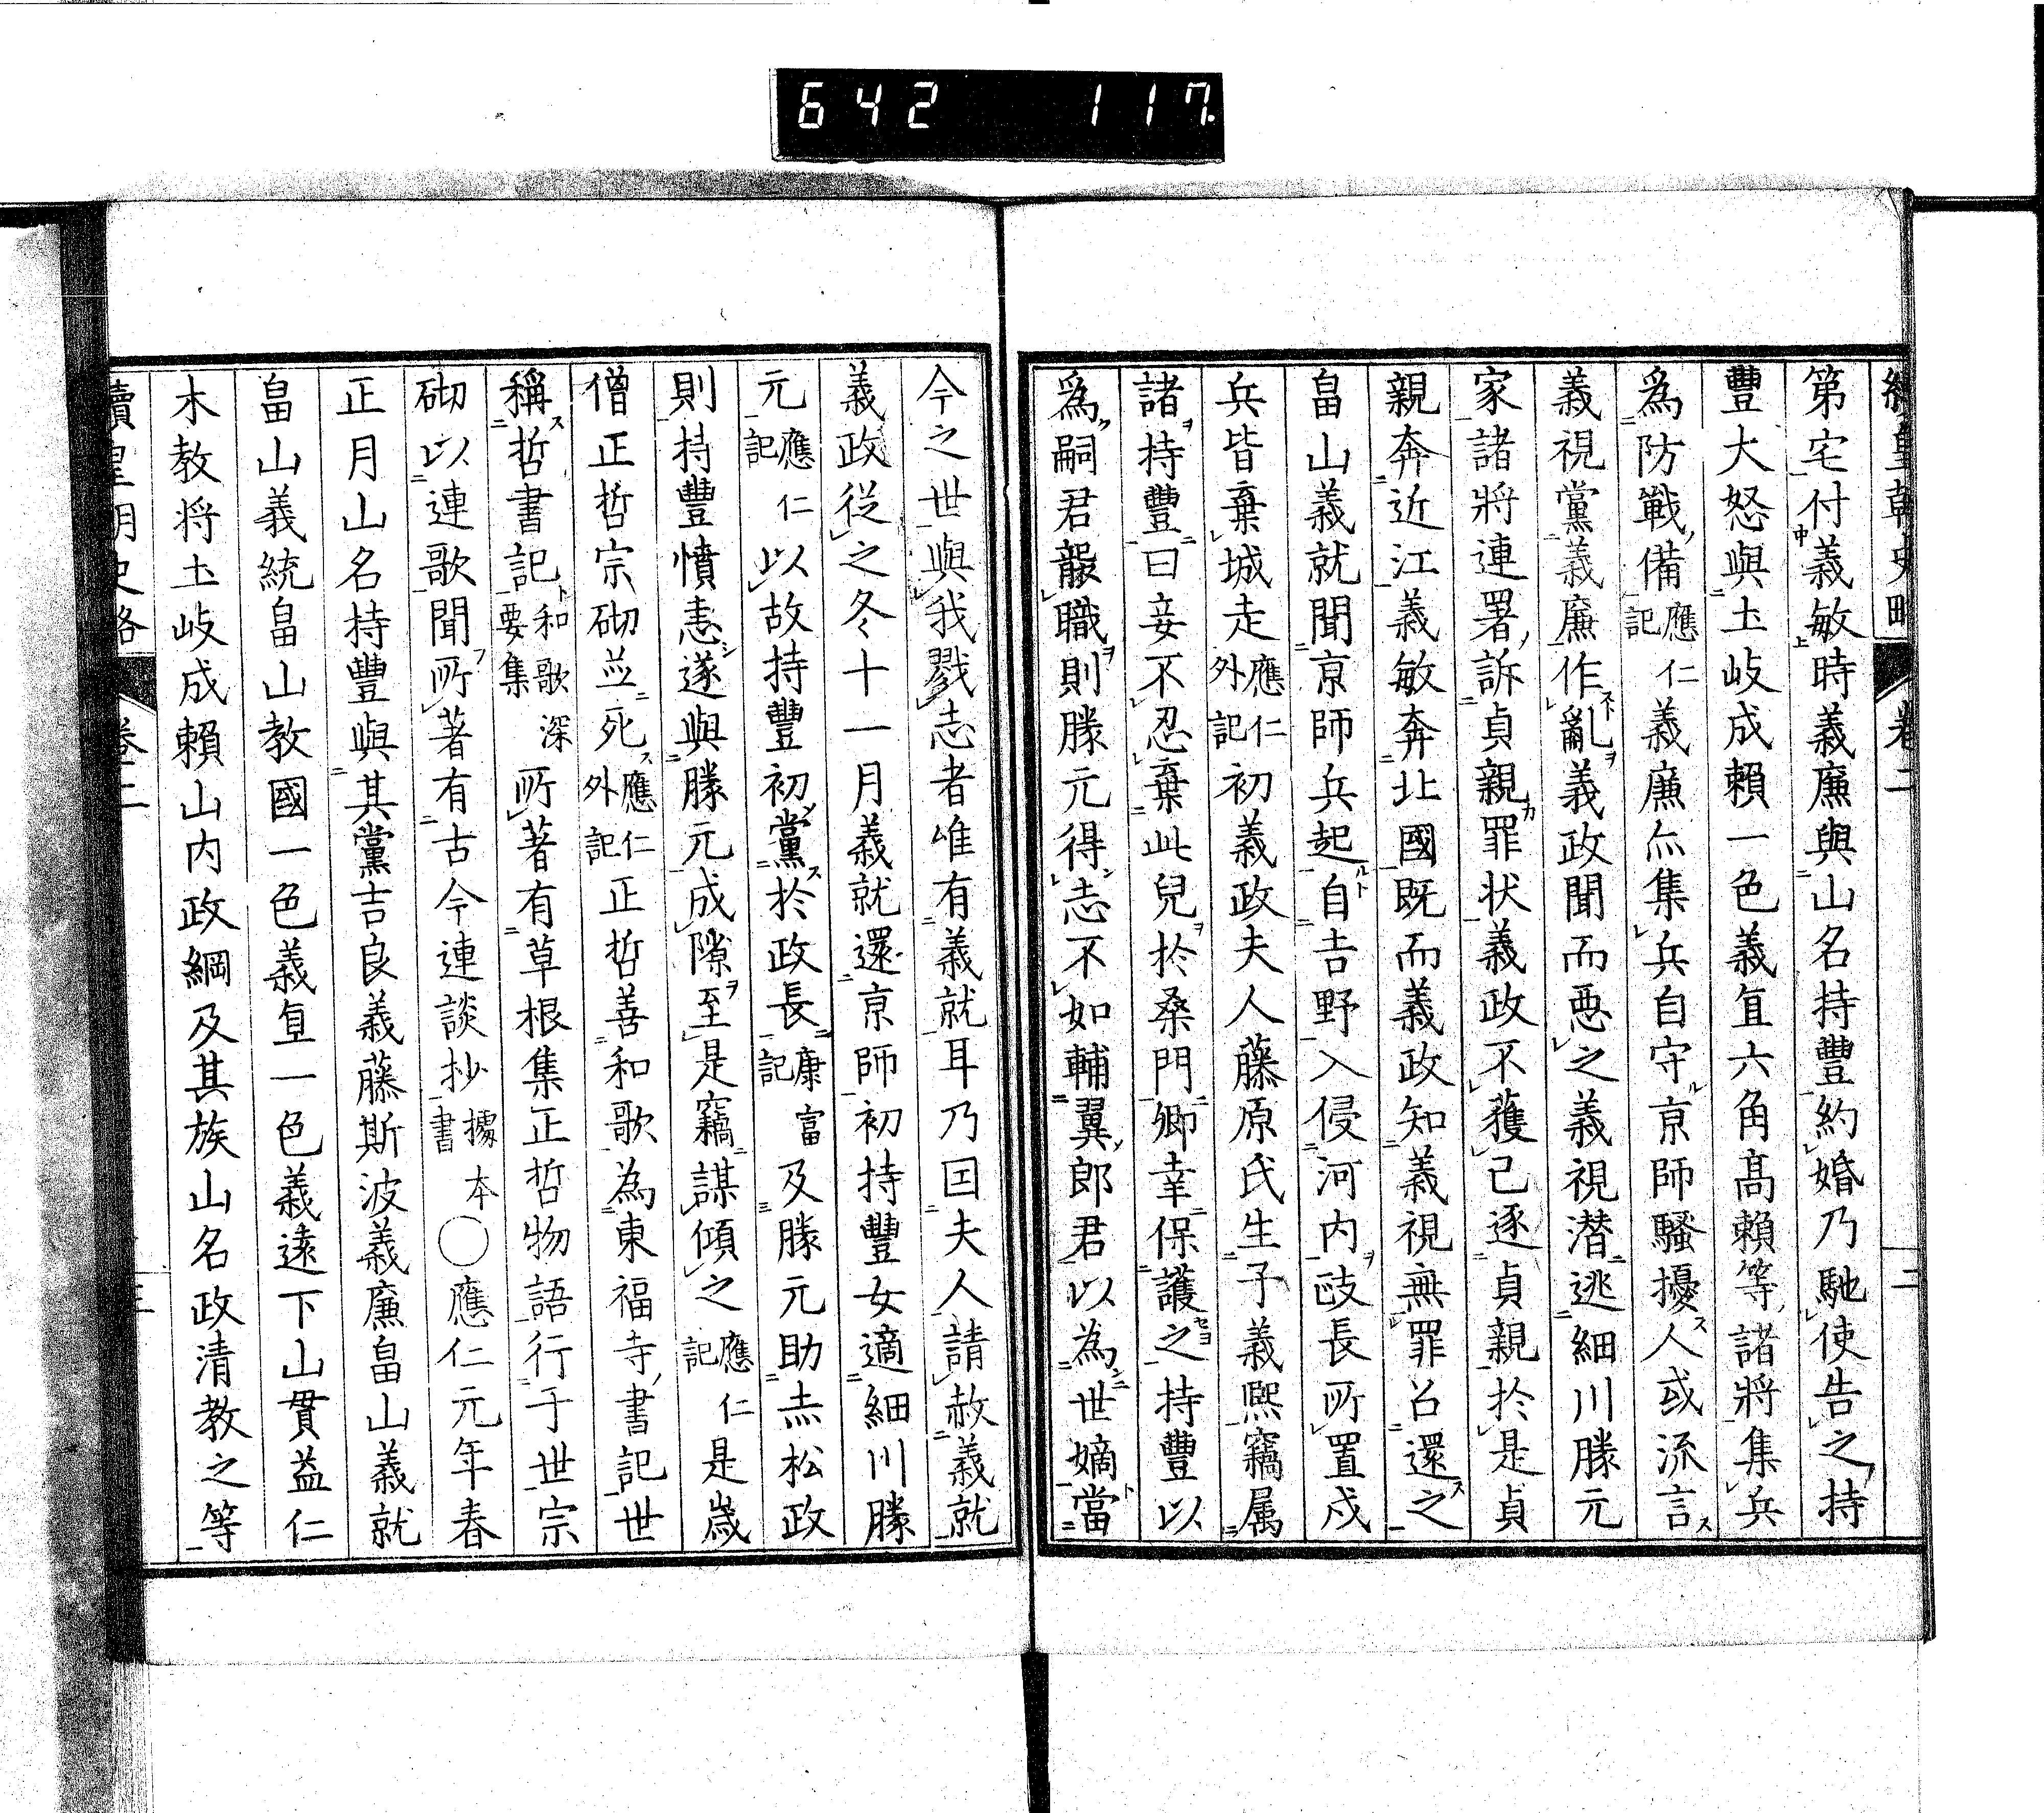 642 117
續皇朝史略 卷二 二
第宅付義敏時義廉與山名持豐約婚乃馳使告之持
豐大怒與土岐成賴一色義直六角髙賴等諸將集兵
爲防戰備應仁記義廉亦集兵自守京師騷擾人或流言
義視黨義廉作亂義政聞而惡之義視潜逃細川勝元
家諸將連署訴貞親罪状義政不獲已逐貞親於是貞
親奔近江義敏奔北國既而義政知義視無罪召還之
畠山義就聞京師兵起自吉野入侵河内政長所置戍
兵皆棄城走應仁外記初義政夫人藤原氏生子義熙竊属
諸持豐曰妾不忍棄此兒於桑門卿幸保護之持豐以
爲嗣君襲職則勝元得志不如輔翼郎君以為世嫡當
今之世與我戮志者唯有義就耳乃因夫人請赦義就
義政從之冬十一月義就還京師初持豐女適細川勝
元應仁記以故持豐初黨於政長康富記及勝元助赤松政
則持豐憤恚遂與勝元成隙至是竊謀傾之應仁記是歳
僧正哲宗砌並死應仁外記正哲善和歌為東福寺書記世
稱哲書記和歌深要集所著有草根集正哲物語行于世宗
砌以連歌聞所著有古今連談抄據本書○應仁元年春
正月山名持豐與其黨吉良義藤斯波義廉畠山義就
畠山義統畠山教國一色義直一色義遠下山貫益仁
木教将土岐成賴山内政綱及其族山名政清教之等
續皇朝史略 卷二 三